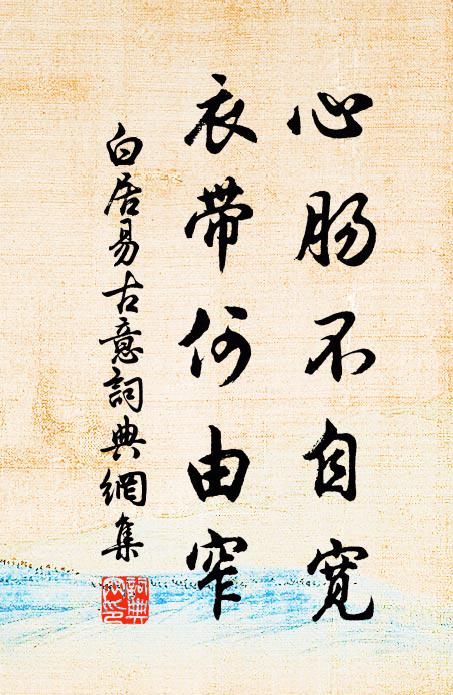 心肠不自寬
衣帶何由窄
白居易古意詞典網集